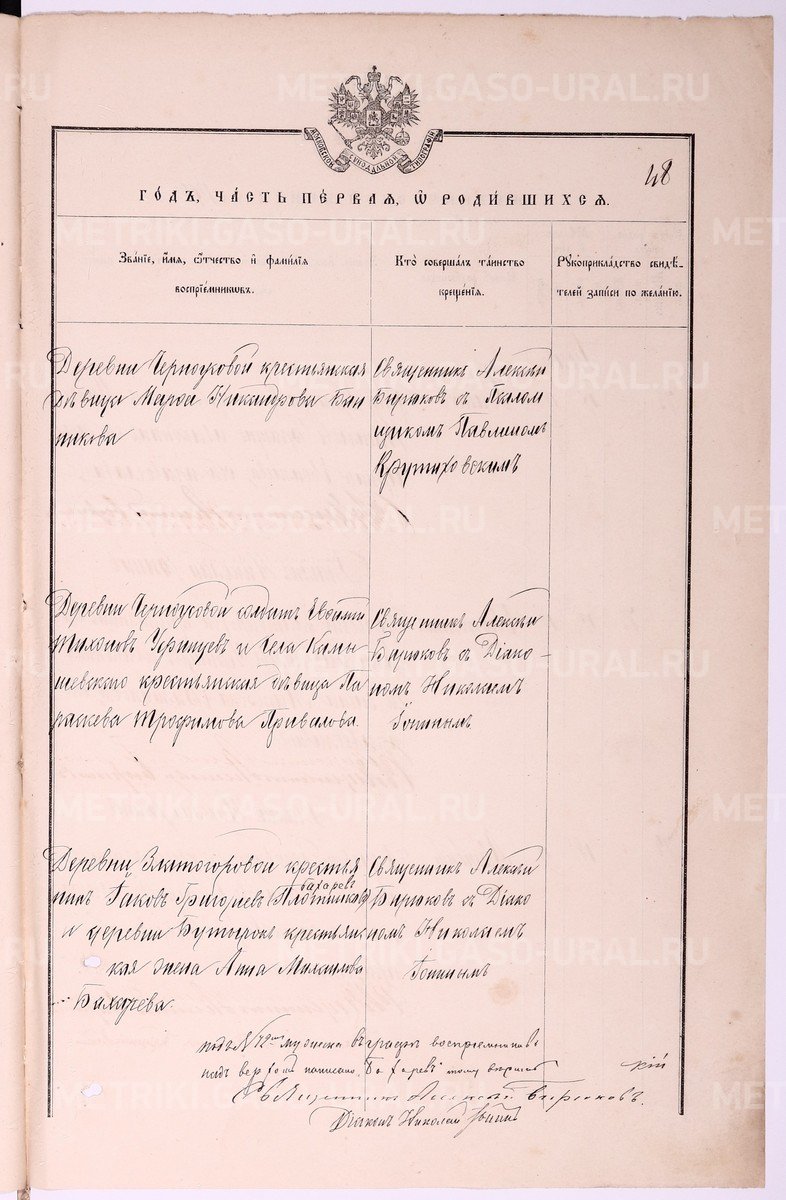 METRIKI.GASO-URAL.RU
МОСКОВСКОЙ СѴНОДАЛЬНОЙ ТИПОГРАФІИ
48
ГО́ДЪ, ЧА́СТЬ ПЕ́РВАЯ, Ѡ҆ РОДИ́ВШИХСЯ.
Зва́нїе, и҆́мя, ѻ҆́тчество и҆ фами́лїя
воспрїе́мникѡвъ.
Кто̀ соверша́лъ та́инство
креще́нїя.
Рꙋкоприкла́дство свидѣ́-
телей за́писи по жела́нїю.
Деревни Черноусковой крестьянская
дѣвица Марѳа Никандрова Бан
никова
Священникъ Алексѣй
Бирюковъ съ Псалом
щикомъ Павлиномъ
Крутиховскимъ
Деревни Черноусковой солдатъ Евѳимій
Тихоновъ Уфинцевъ и села Камы
шевскаго крестьянская дѣвица Па
раскева Трофимова Привалова.
Священникъ Алексѣй
Бирюковъ съ Діако-
номъ Николаемъ
Деревни Златогоровой крестья
Бахаревъ
нинъ Іаковъ Григорьевъ (Плотниковъ)
и деревни Бутырокъ крестьянс
кая жена Анна Михаилова
Бахарева.
Священникъ Алексѣй
Бирюковъ съ Діако
номъ Николаемъ
въ графѣ воспріемниковъ
надъ верхомъ написано „Бахаревъ" тому вѣримъ
Священникъ Алексѣй Бирюковъ.
Діаконъ Николай
кій